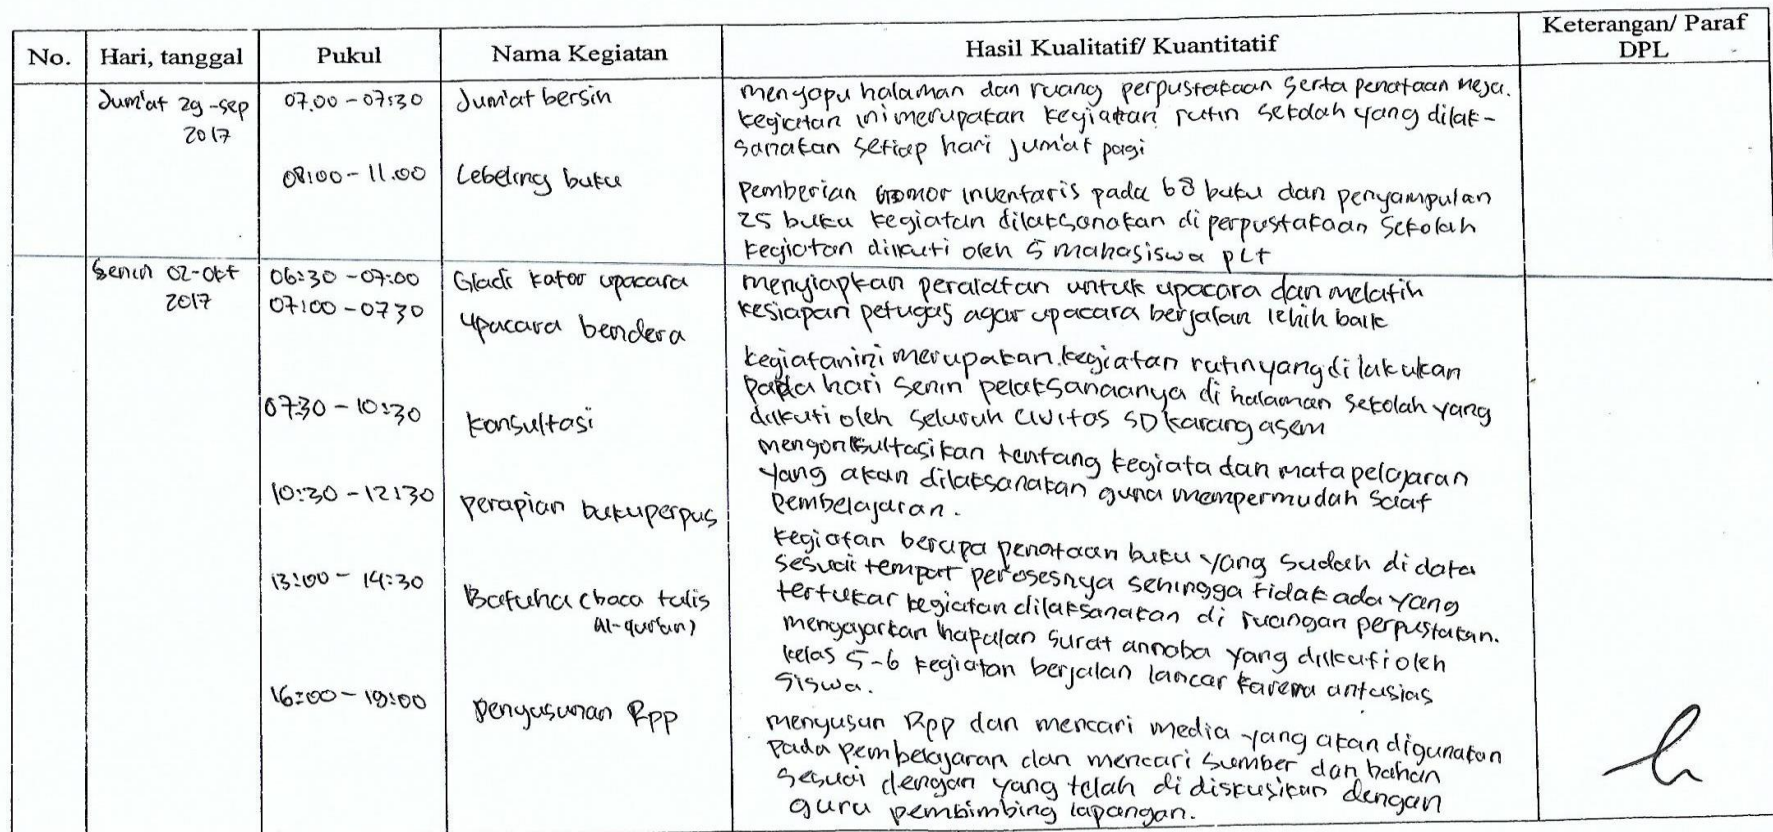 No. Hari, tanggal Pukul Nama Kegiatan Hasil Kualitatif/ Kuantitatif Keterangan/ Paraf DPL
Jum'at 29-sep 2017
07.00-07:30 Jum'at bersih
menyapu halaman dan ruang perpustakaan serta penataan meja.
kegiatan ini merupakan kegiatan rutin sekolah yang dilak-
sanakan setiap hari jum'at pagi
08:00-11.00 Lebeling buku
pemberian nomor inventaris pada 68 buku dan penyampulan
25 buku kegiatan dilaksanakan di perpustakaan sekolah
kegiatan diikuti oleh 5 mahasiswa PLT
Senin 02-okt 2017
06:30-07:00 Gladi kotor upacara
menyiapkan peralatan untuk upacara dan melatih
kesiapan petugas agar upacara berjalan lebih baik
07:00-0730 upacara bendera
kegiatan ini merupakan kegiatan rutin yang dilakukan
pada hari senin pelaksanaanya di halaman sekolah yang
diikuti oleh seluruh civitas SD karang asem
0730-10:30 konsultasi
mengonsultasikan tentang kegiata dan mata pelajaran
yang akan dilaksanakan guna mempermudah saat
pembelajaran.
10:30-12:30 perapian buku perpus
kegiatan berupa penataan buku yang sudah di data
sesuai tempat perosesnya sehingga tidak ada yang
tertukar kegiatan dilaksanakan di ruangan perpustakan.
13:00-14:30 Batuha (baca tulis al-qur'an)
mengajarkan hapalan surat annaba yang diikuti oleh
kelas 5-6 kegiatan berjalan lancar karena antusias
siswa.
16:00-18:00 penyusunan Rpp
menyusun Rpp dan mencari media yang akan digunakan
pada pembelajaran dan mencari sumber dan bahan
sesuai dengan yang telah di diskusikan dengan
guru pembimbing lapangan.